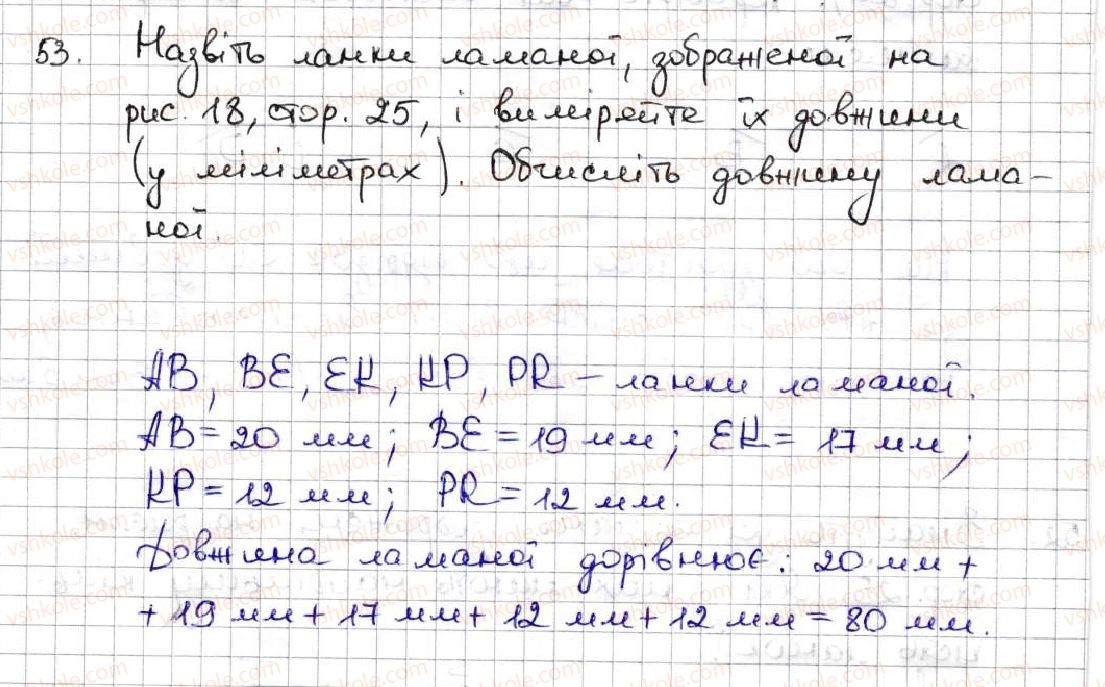 53. Назвіть ланки ламаної, зображеної на
рис. 18, стор. 25, і виміряйте їх довжини
(у міліметрах). Обчисліть довжину лама-
ної.
AB, BE, EK, KP, PR – ланки ламаної.
AB = 20 мм; BE = 19 мм; EK = 17 мм;
KP = 12 мм; PR = 12 мм.
Довжина ламаної дорівнює: 20 мм +
+ 19 мм + 17 мм + 12 мм + 12 мм = 80 мм.